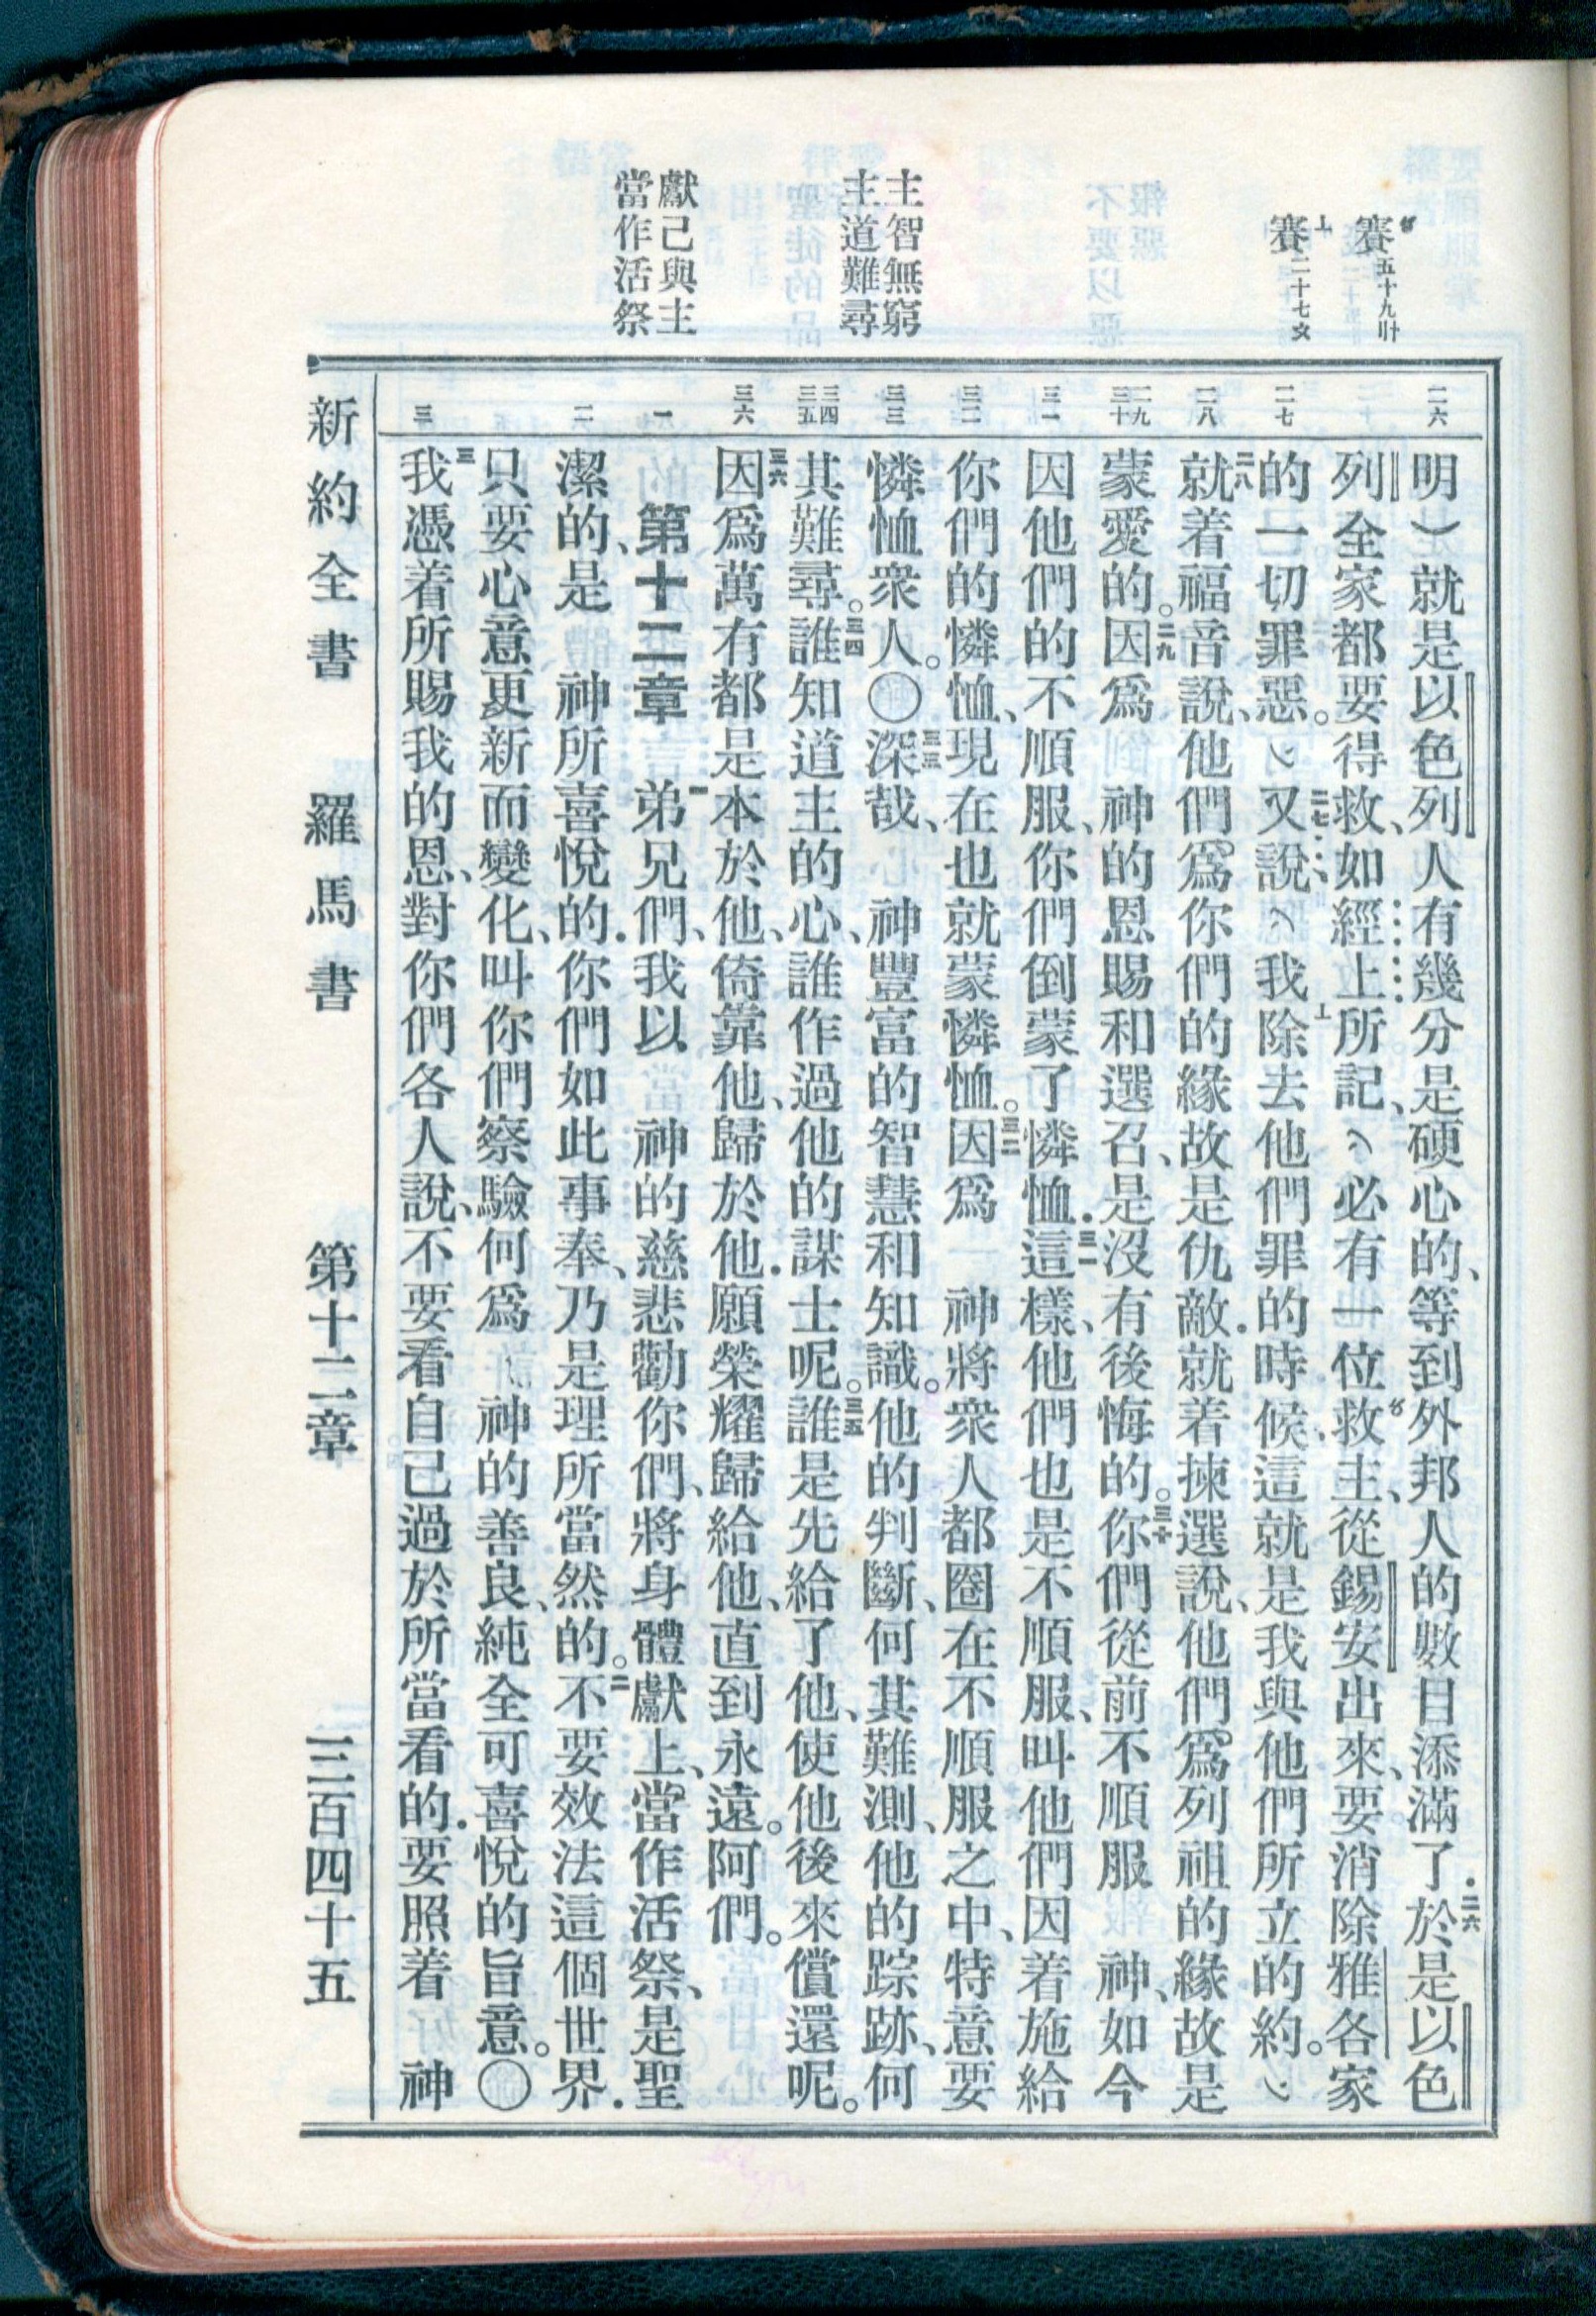 賽五十九卄
賽二十七文
主智無窮
主道難尋
獻己與主
當作活祭
二六
二七
二八
二九
三十
三一
三二
三三
三四
三五
三六
一
二
三
明）就是以色列人有幾分是硬心的、等到外邦人的數目添滿了．二六於是以色
列全家都要得救、如經上所記、必有一位救主、從錫安出來、要消除雅各家
的一切罪惡。二七又說、我除去他們罪的時候、這就是我與他們所立的約。
二八就着福音說、他們爲你們的緣故是仇敵．就着揀選說、他們爲列祖的緣故是
蒙愛的。二九因爲　神的恩賜和選召、是沒有後悔的。三十你們從前不順服　神、如今
因他們的不順服、你們倒蒙了憐恤．三一這樣、他們也是不順服、叫他們因着施給
你們的憐恤、現在也就蒙憐恤。三二因爲　神將衆人都圈在不順服之中、特意要
憐恤衆人。〇三三深哉、神豐富的智慧和知識。他的判斷、何其難測、他的踪跡、何
其難尋。三四誰知道主的心、誰作過他的謀士呢。三五誰是先給了他、使他後來償還呢。
三六因爲萬有都是本於他、倚靠他、歸於他．願榮耀歸給他、直到永遠。阿們。
第十二章　一弟兄們、我以　神的慈悲勸你們、將身體獻上、當作活祭、是聖
潔的、是　神所喜悅的．你們如此事奉、乃是理所當然的。二不要效法這個世界．
只要心意更新而變化、叫你們察驗何爲　神的善良、純全可喜悅的旨意。〇
三我憑着所賜我的恩、對你們各人說、不要看自己過於所當看的．要照着　神
新約全書　羅馬書　第十二章　三百四十五